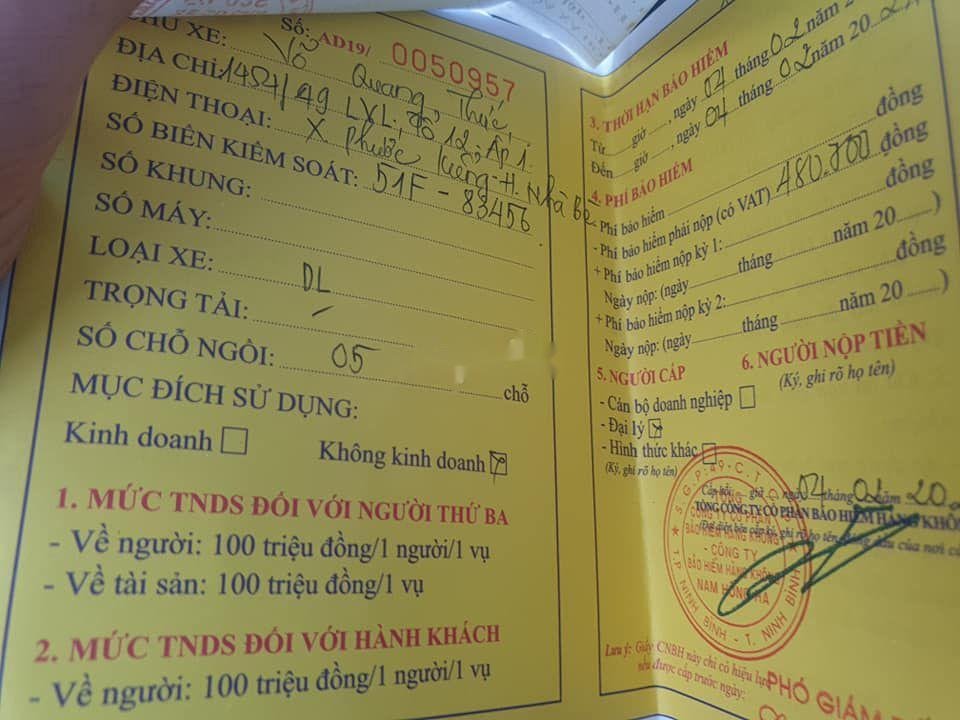 CHỦ XE: Võ Quang Thức,
Số: AD19/ 0050957
ĐỊA CHỈ: 1454/49 LXL, tổ 12, Ấp 1.
ĐIỆN THOẠI: X Phước Kiểng - H. Nhà Bè
SỐ BIỂN KIỂM SOÁT: 51F - 83456
SỐ KHUNG:
SỐ MÁY:
LOẠI XE: DL
TRỌNG TẢI: -
SỐ CHỖ NGỒI: 05 chỗ
MỤC ĐÍCH SỬ DỤNG:
Kinh doanh Không kinh doanh
1. MỨC TNDS ĐỐI VỚI NGƯỜI THỨ BA
- Về người: 100 triệu đồng/1 người/1 vụ
- Về tài sản: 100 triệu đồng/1 vụ
2. MỨC TNDS ĐỐI VỚI HÀNH KHÁCH
- Về người: 100 triệu đồng/1 người/1 vụ
3. THỜI HẠN BẢO HIỂM
Từ giờ , ngày 04 tháng 02 năm
Đến giờ , ngày 04 tháng 02 năm 20
4. PHÍ BẢO HIỂM
Phí bảo hiểm đồng
- Phí bảo hiểm phải nộp (có VAT) 480.700 đồng
+ Phí bảo hiểm nộp kỳ 1: đồng
Ngày nộp: (ngày tháng năm 20 )
+ Phí bảo hiểm nộp kỳ 2: đồng
Ngày nộp: (ngày tháng năm 20 )
5. NGƯỜI CẤP
- Cán bộ doanh nghiệp
- Đại lý
- Hình thức khác
(Ký, ghi rõ họ tên)
6. NGƯỜI NỘP TIỀN
(Ký, ghi rõ họ tên)
Cấp hồi: giờ , ngày 04 tháng 02 năm 20
TỔNG CÔNG TY CỔ PHẦN BẢO HIỂM HÀNG KHÔNG
CÔNG TY
BẢO HIỂM HÀNG KHÔNG
NAM HỒNG HÀ
T.P NINH BÌNH - T. NINH BÌNH
Lưu ý: Giấy CNBH này chỉ có hiệu lực
nếu được cấp trước ngày:
PHÓ GIÁM